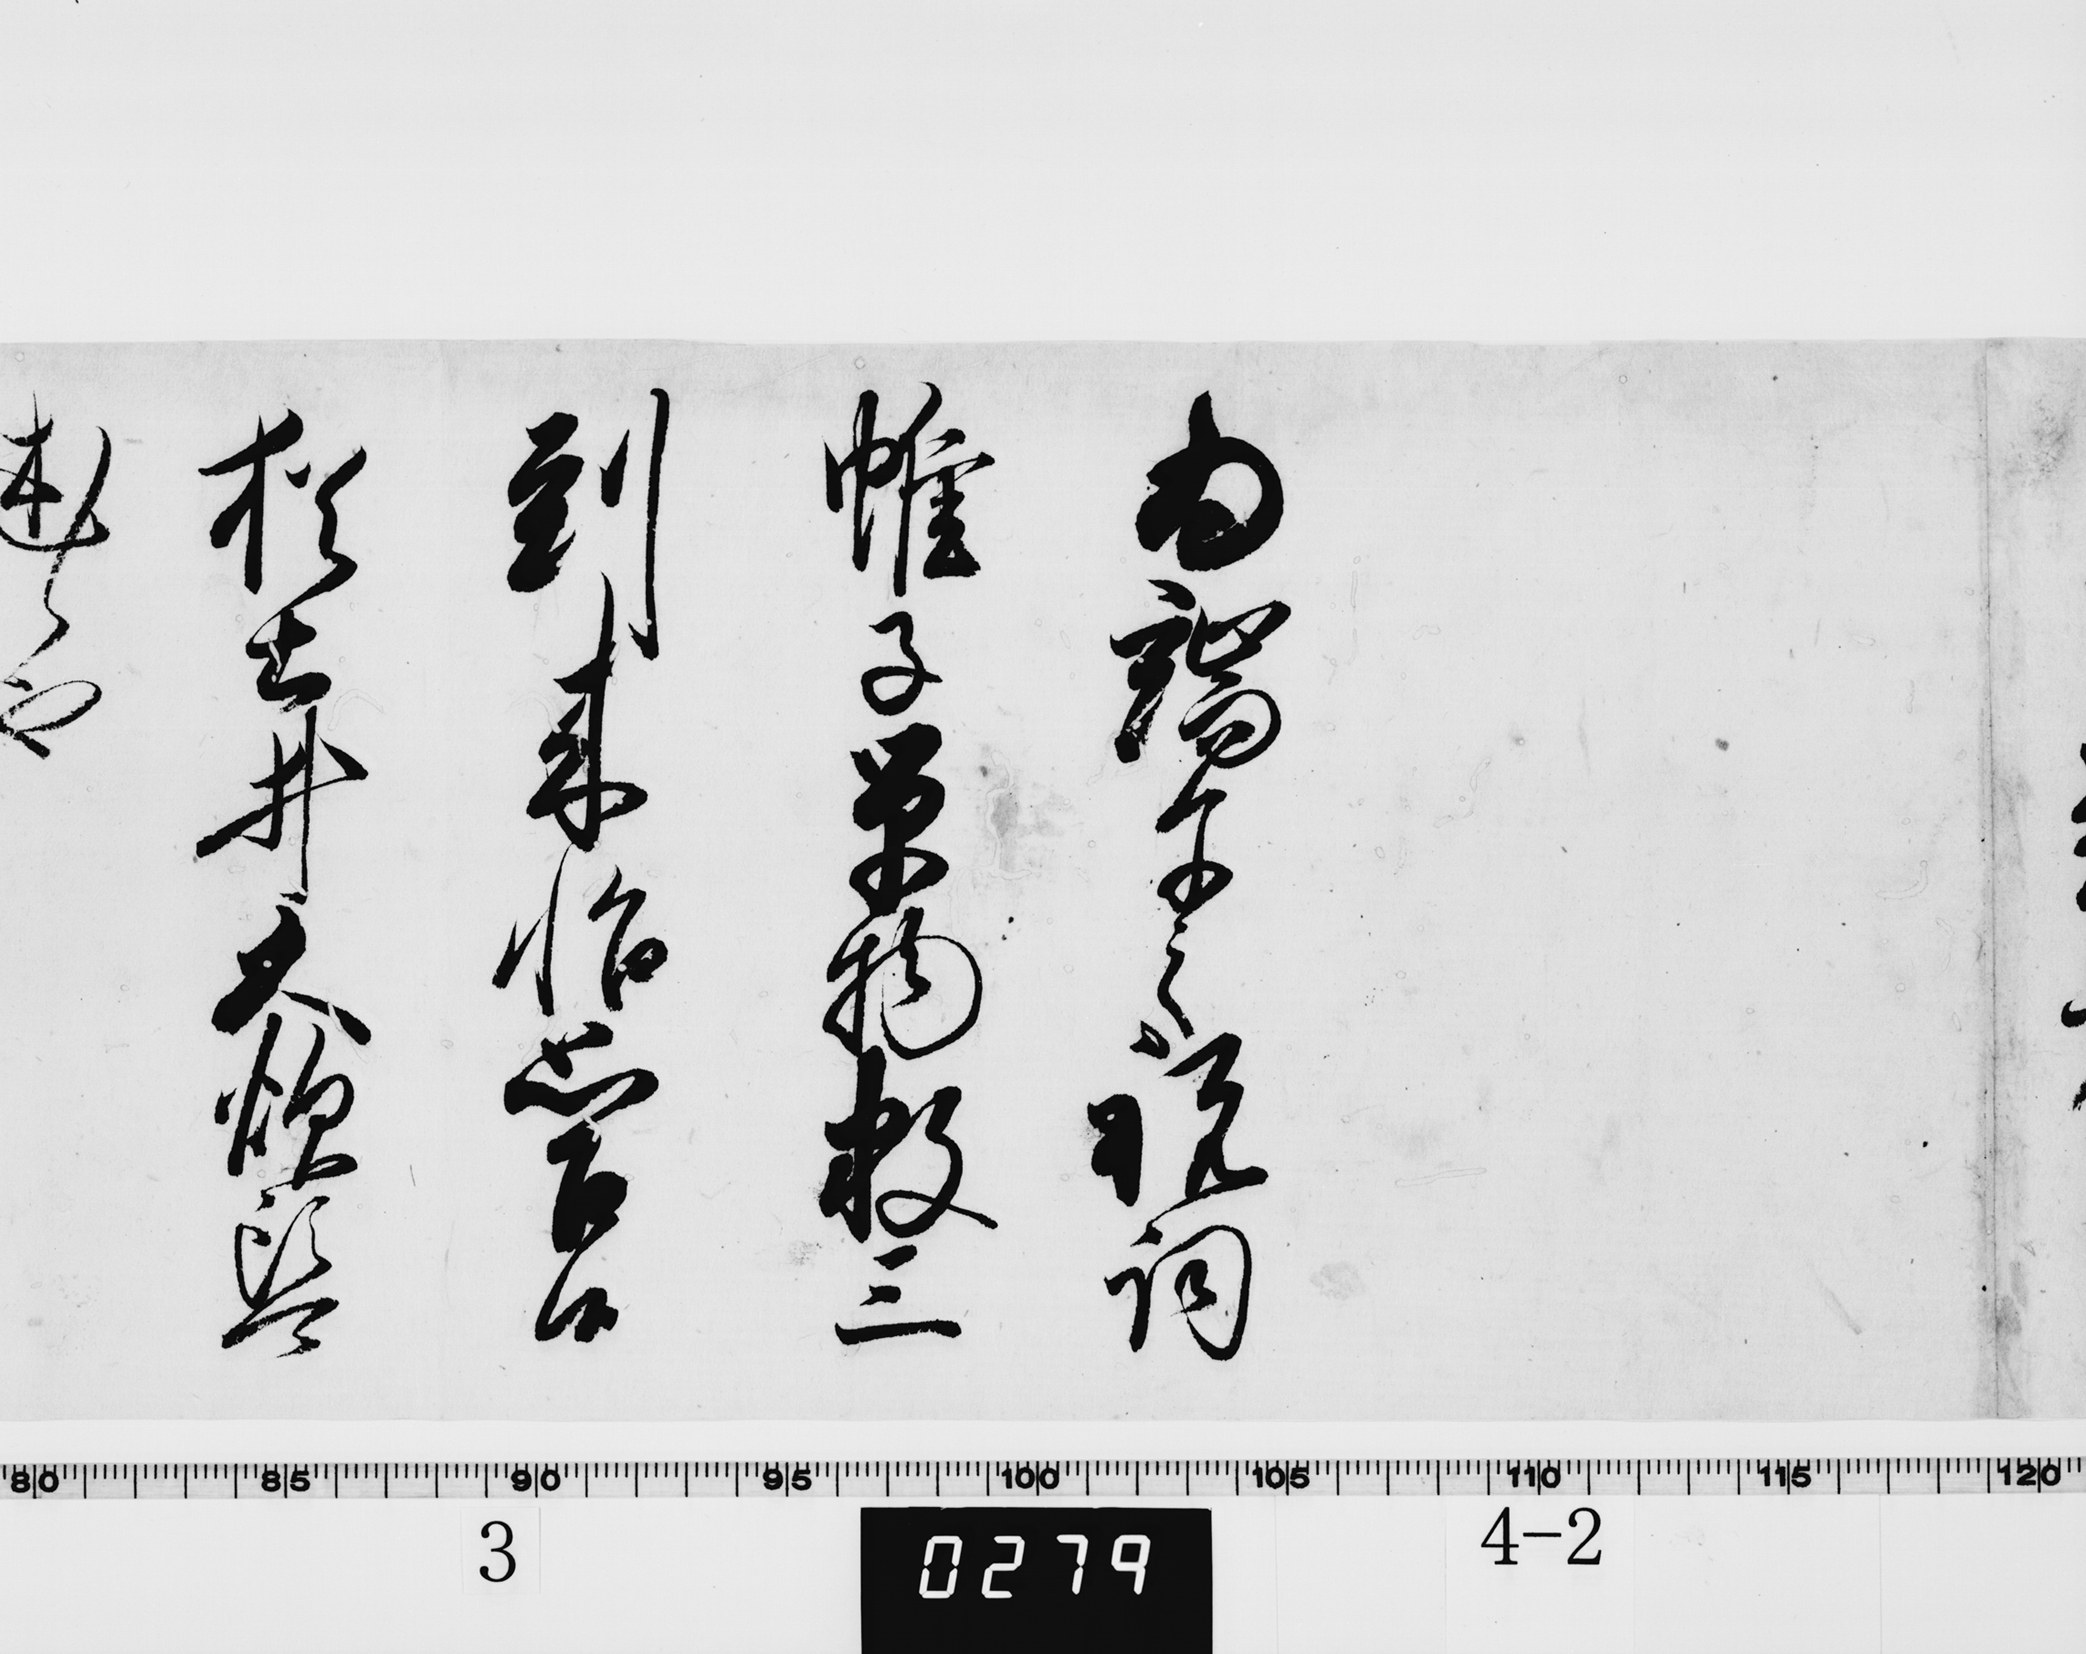 為端午之祝詞
帷子単物数三
到来怡思召候
猶土井大炊頭
可
述候也
80 85 90 95 100 105 110 115 120
3
0279
4-2